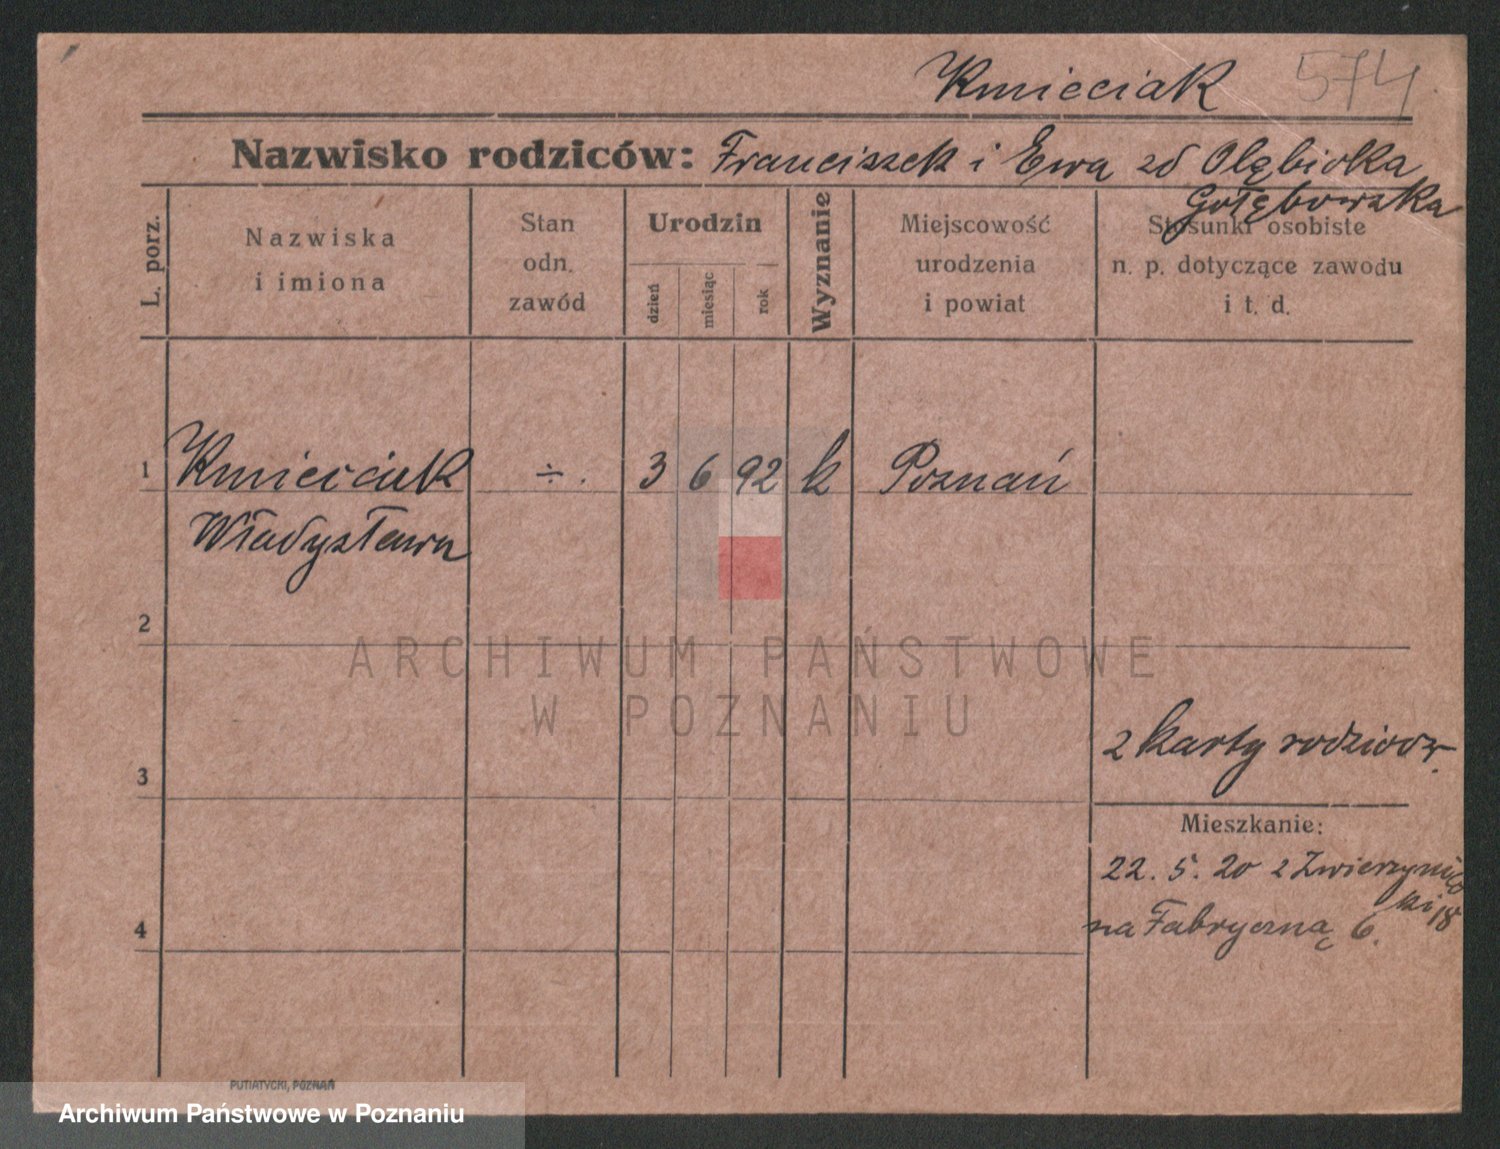 Kmieciak 574
Nazwisko rodziców: Franciszek i Ewa zd Olębiolka
Gołębowska
L. porz.
Nazwiska
i imiona
Stan
odn.
zawód
Urodzin
dzień
miesiąc
rok
Wyznanie
Miejscowość
urodzenia
i powiat
Stosunki osobiste
n. p. dotyczące zawodu
i t. d.
1 Kmieciak ÷. 3 6 92 k Poznań
Władysława
2
ARCHIWUM PAŃSTWOWE
W POZNANIU
z karty rodziców.
3
Mieszkanie:
22. 5. 20 z Zwierzyniec
ki 18
na Fabryczną 6.
4
PUTIATYCKI, POZNAŃ
Archiwum Państwowe w Poznaniu